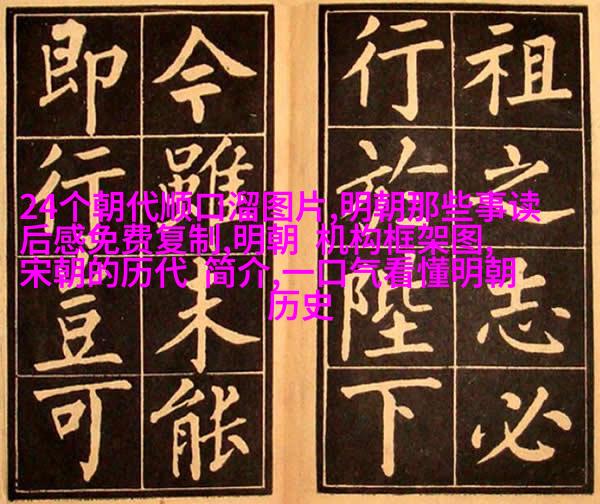 祖之志必
行於陛下
今雖未能
即行豆可
24个朝代顺口溜图片,明朝那些事读
后感免费复制,明朝 机构框架图,
宋朝的历代 简介,一口气看懂明朝
历史